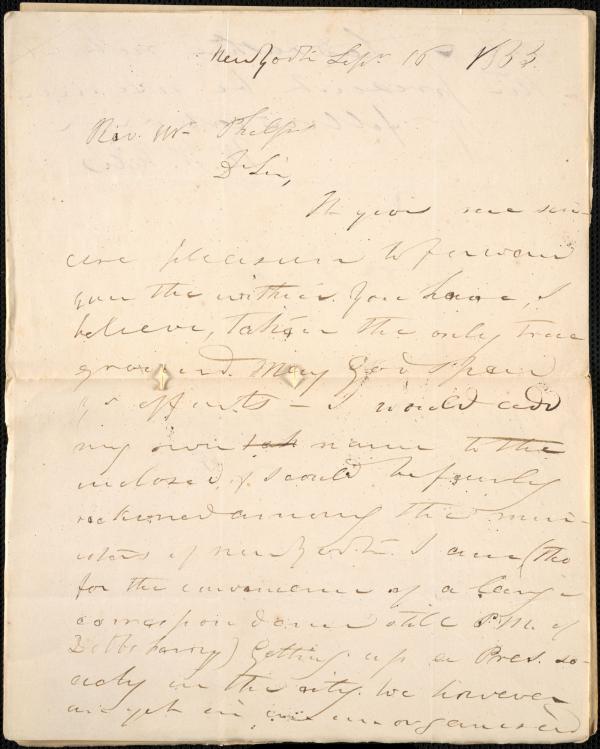 New York Sepr 16 1833.
Rev. Mr Phelps
Dr Sir,
It gives me sin-
cere pleasure to forward
you the within. You have, I
believe, taken the only true
ground. May God speed
yr efforts – I would add
my own name to the
inclosed, if I could be fairly
reckoned among the min-
isters of New York. I am (tho
for the convenience of a large
correspondence still P.M. of
Dobbs Ferry) getting up a Pres. so-
ciety in the city. We however
are yet in an unorganized